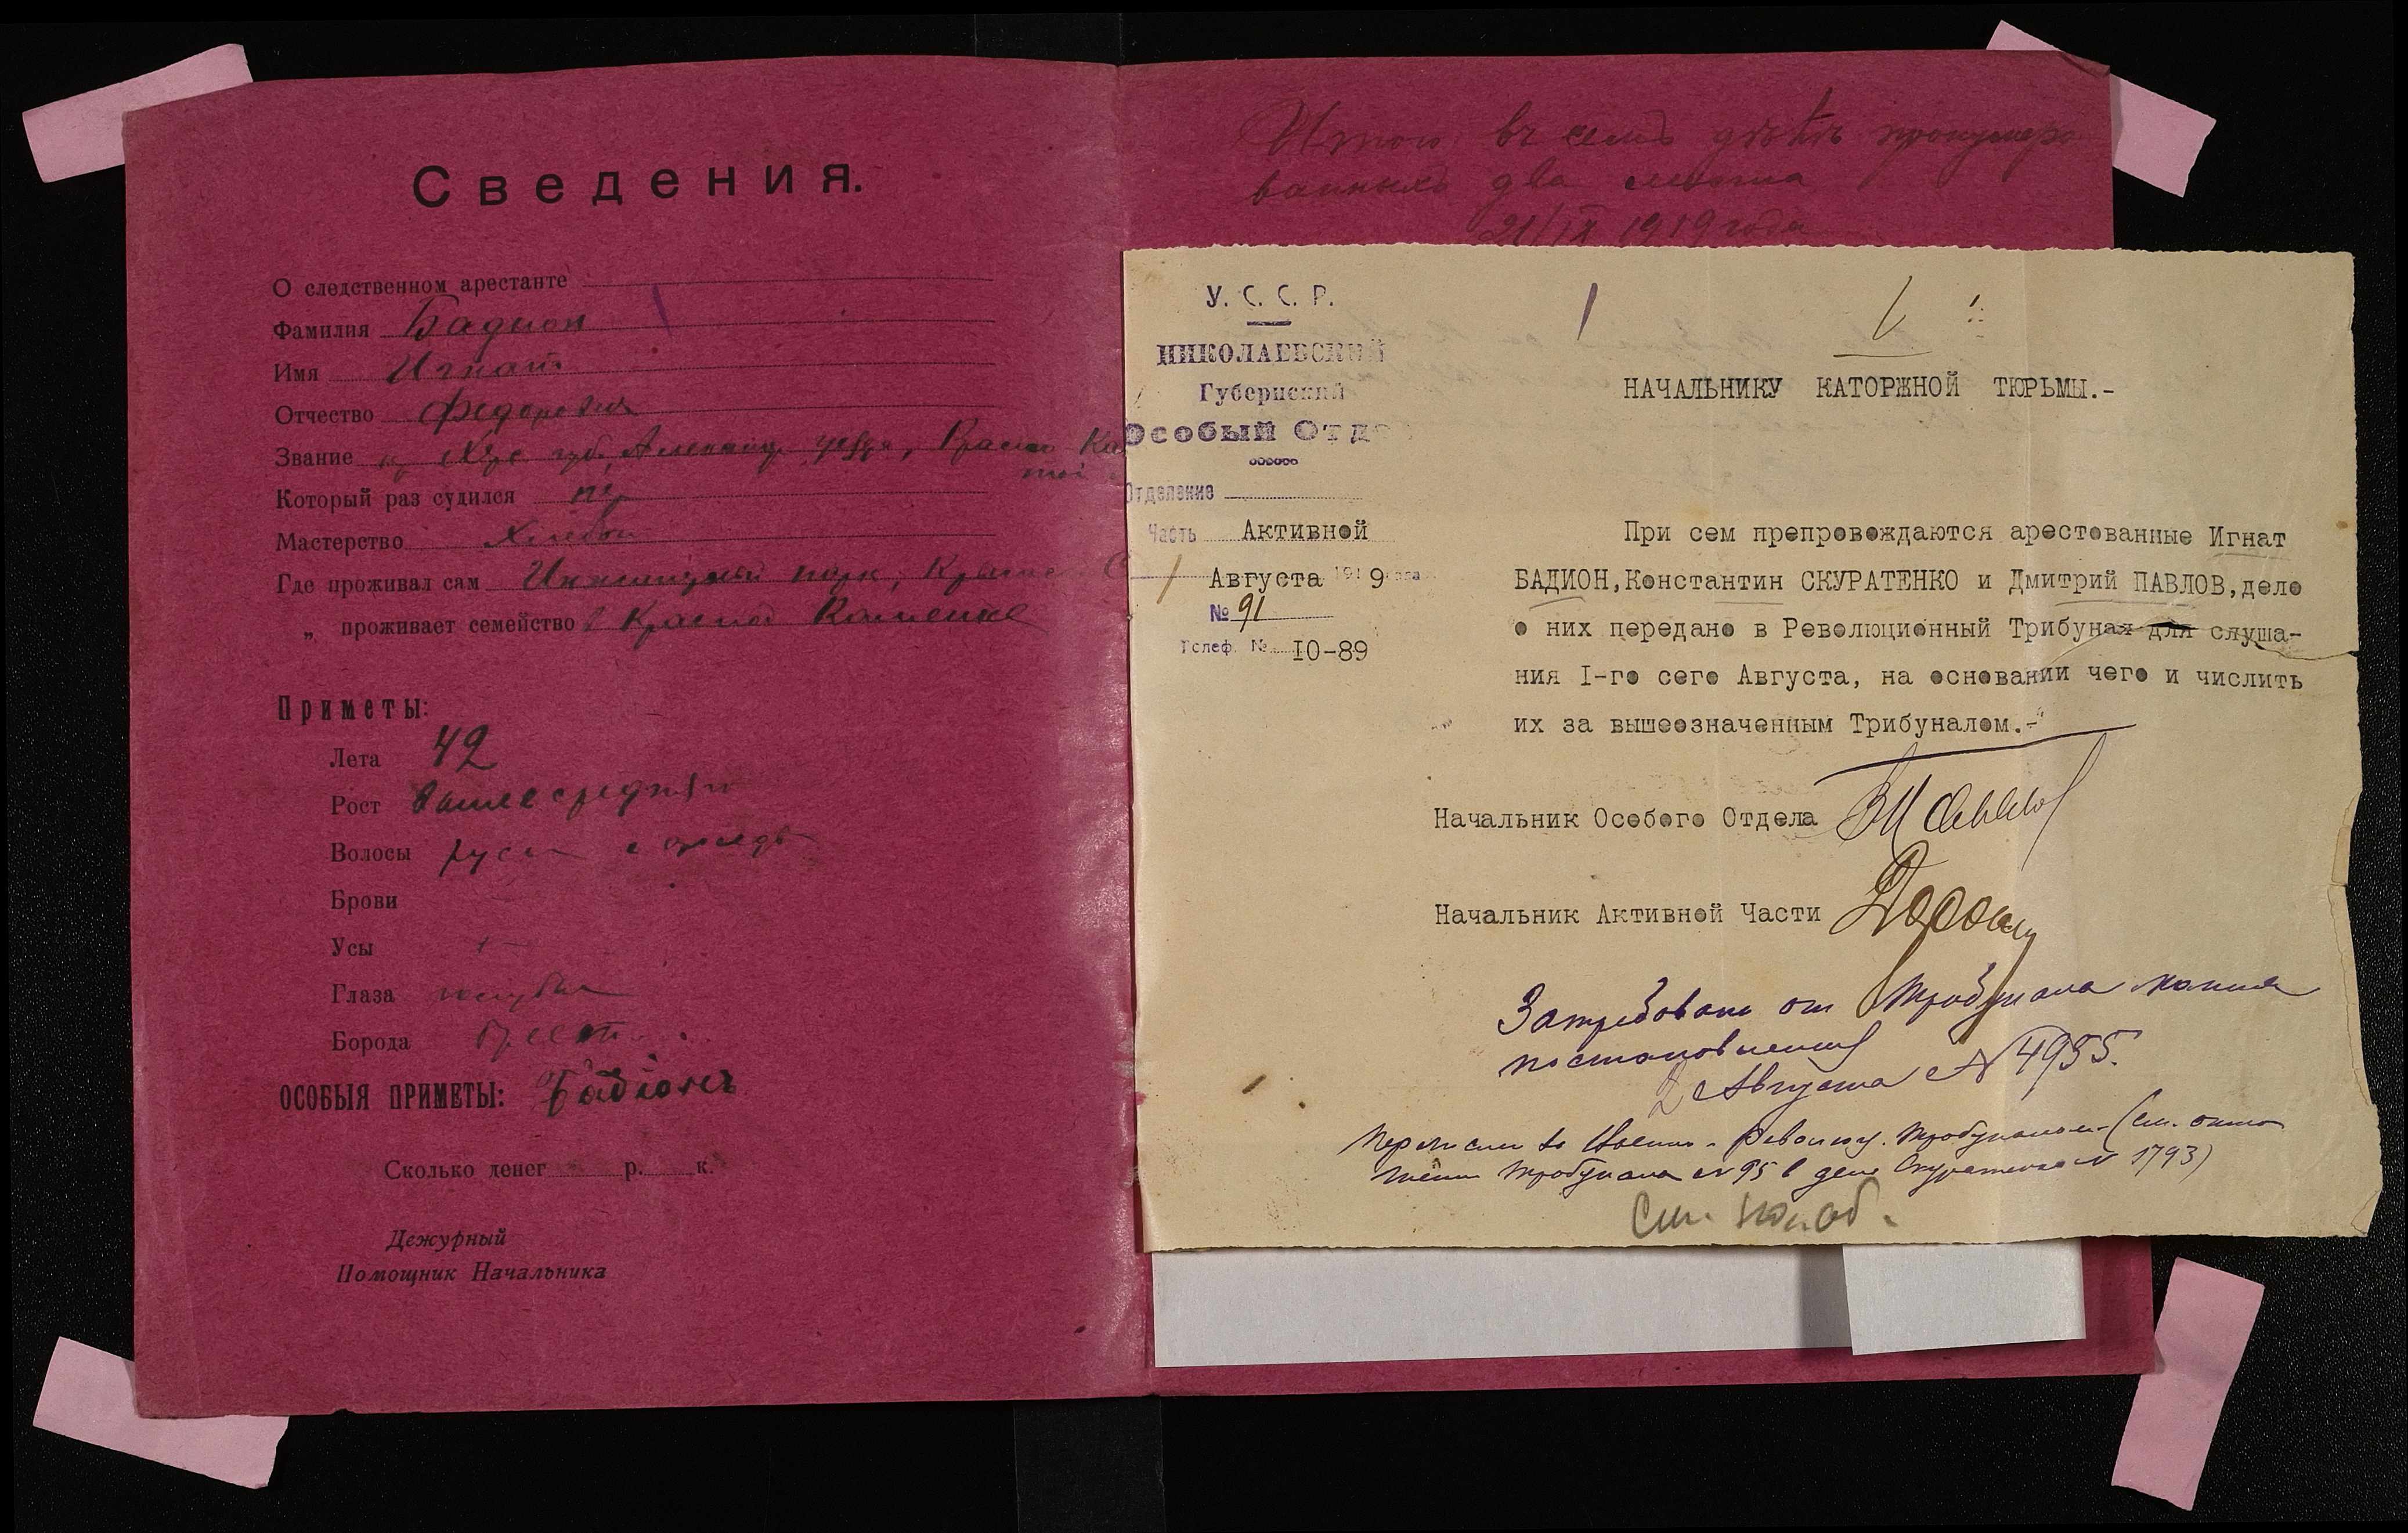 Сведения.
О следственном арестанте
Фамилия Бадион
Имя Игнат
Отчество Федорович
Звание кр Хер губ, Александ уезда, Красно Ка
Который раз судился
Мастерство Хлебоп
Где проживал сам парк, Красно
„ проживает семейство в Красной Каменке
Приметы:
Лета 42
Рост выше средняго
Волосы русы
Брови
Усы
Глаза голубые
Борода
ОСОБЫЯ ПРИМЕТЫ: Бадіонъ
Сколько денег р. к.
Дежурный
Помощник Начальника
Итого въ семъ дѣлѣ пронумеро
ванныхъ два листа
21/IX 1919 года
У. С. С. Р.
НИКОЛАЕВСКИЙ
Губернский
Особый Отде
Отделение
Часть Активной
1 Августа 1919 года
№ 91
Телеф. № I0-89
НАЧАЛЬНИКУ КАТОРЖНОЙ ТЮРЬМЫ.-
При сем препровождаются арестованные Игнат
БАДИОН, Константин СКУРАТЕНКО и Дмитрий ПАВЛОВ, дело
о них передано в Революционный Трибунал для слуша-
ния I-го сего Августа, на основании чего и числить
их за вышеозначенным Трибуналом.-
Начальник Особого Отдела
Начальник Активной Части
Затребована от Трибунала копия
постановления
2 Августа № 4955.
Перечислен за Военно-Революц. Трибуналом (см. отно
шение Трибунала № 95 в деле Скуратенко № 1793)
См. на об.